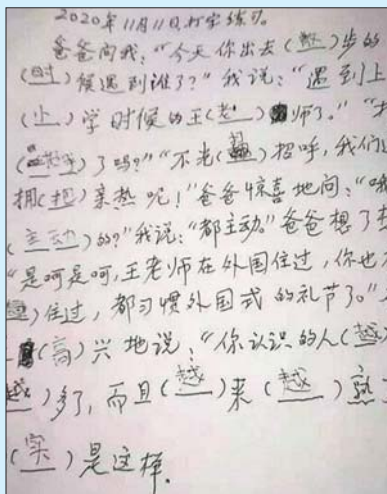 2020年11月11日,打字练习。
爸爸问我:“今天你出去(散)步的
(时)候遇到谁了?”我说:“遇到上
(小)学时候的王(老)师了。”
()了吗?”“不光()招呼,我们还
拥(抱)亲热呢!”爸爸惊喜地问:“
(主动)的?”我说:“都主动。”爸爸想了
“是呵是呵,王老师在外国住过,你也
)住过,都习惯外国式的礼节了。”
(高)兴地说:“你认识的人(越)
越)多了,而且(越)来(越)熟
(实)是这样.